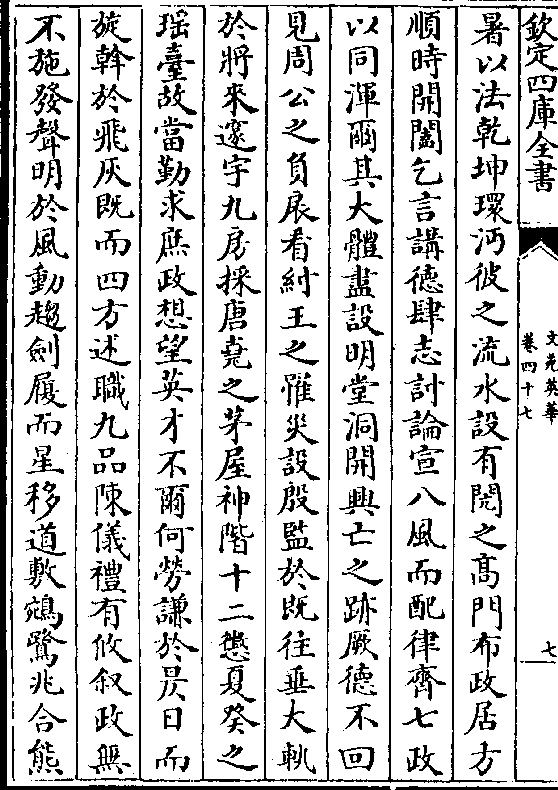 欽定四庫全書
文苑英華
卷四十七
七
暑以法乾坤環沔彼之流水設有閱之高門布政居方
順時開闔乞言講德肆志討論宣八風而配律齊七政
以同渾爾其大體盡設明堂洞開興亡之跡厥德不回
見周公之負扆看紂王之罹災設殷監於既往垂大軌
於將來邃宇九房採唐堯之茅屋神階十二懲夏癸之
瑶臺故當勤求庶政想望英才不爾何勞謙於昃日而
旋斡於飛灰既而四方述職九品陳儀禮有攸叙政無
不施發聲明於風動趨劍履而星移道敷鵷鷺兆合熊